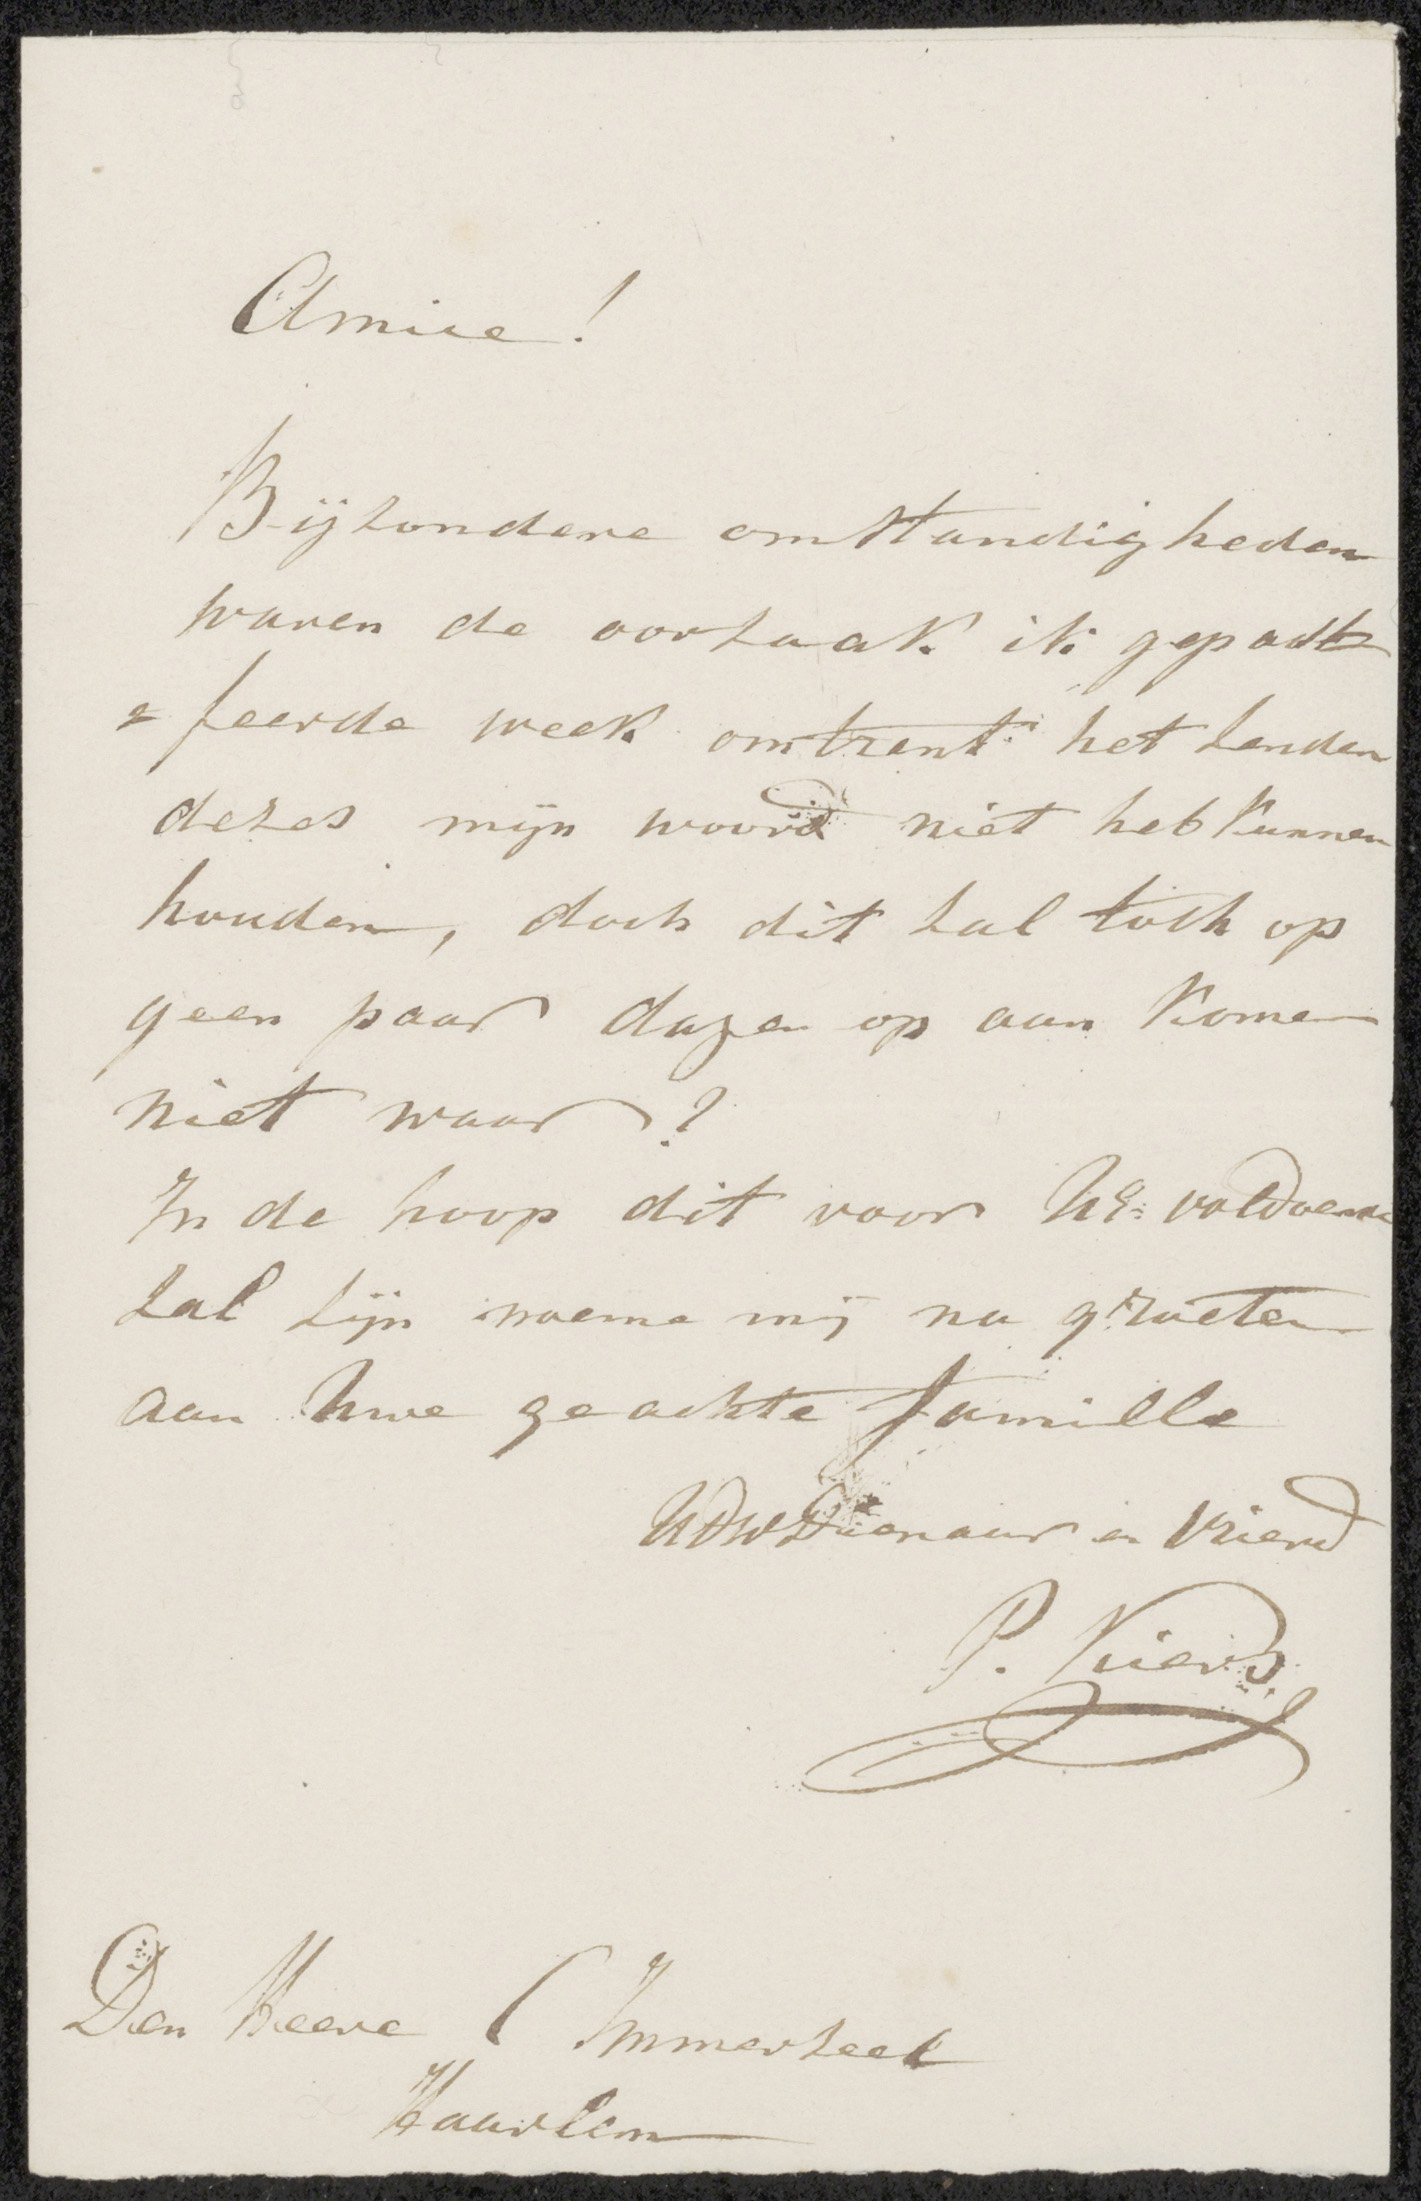 Amice!
Bijzondere omstandigheden
waren de oorzaak ik gepass
= seerde week omtrent het zenden
dezes mijn woord niet heb kunnen
houden, doch dit zal toch op
geen paar dagen op aan komen
niet waar?
In de hoop dit voor UE: voldoende
zal zijn noeme mij na groeten
aan Uwe geachte familie
UDWDienaar en Vriend
P. Kiers
Den Heere C Immerzeel
Haarlem